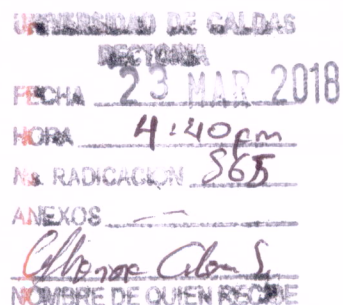 UNIVERSIDAD DE CALDAS
RECTORIA
FECHA 23 MAR 2018
HORA 4:40pm
No. RADICACION 565
ANEXOS —
NOMBRE DE QUIEN RECIBE